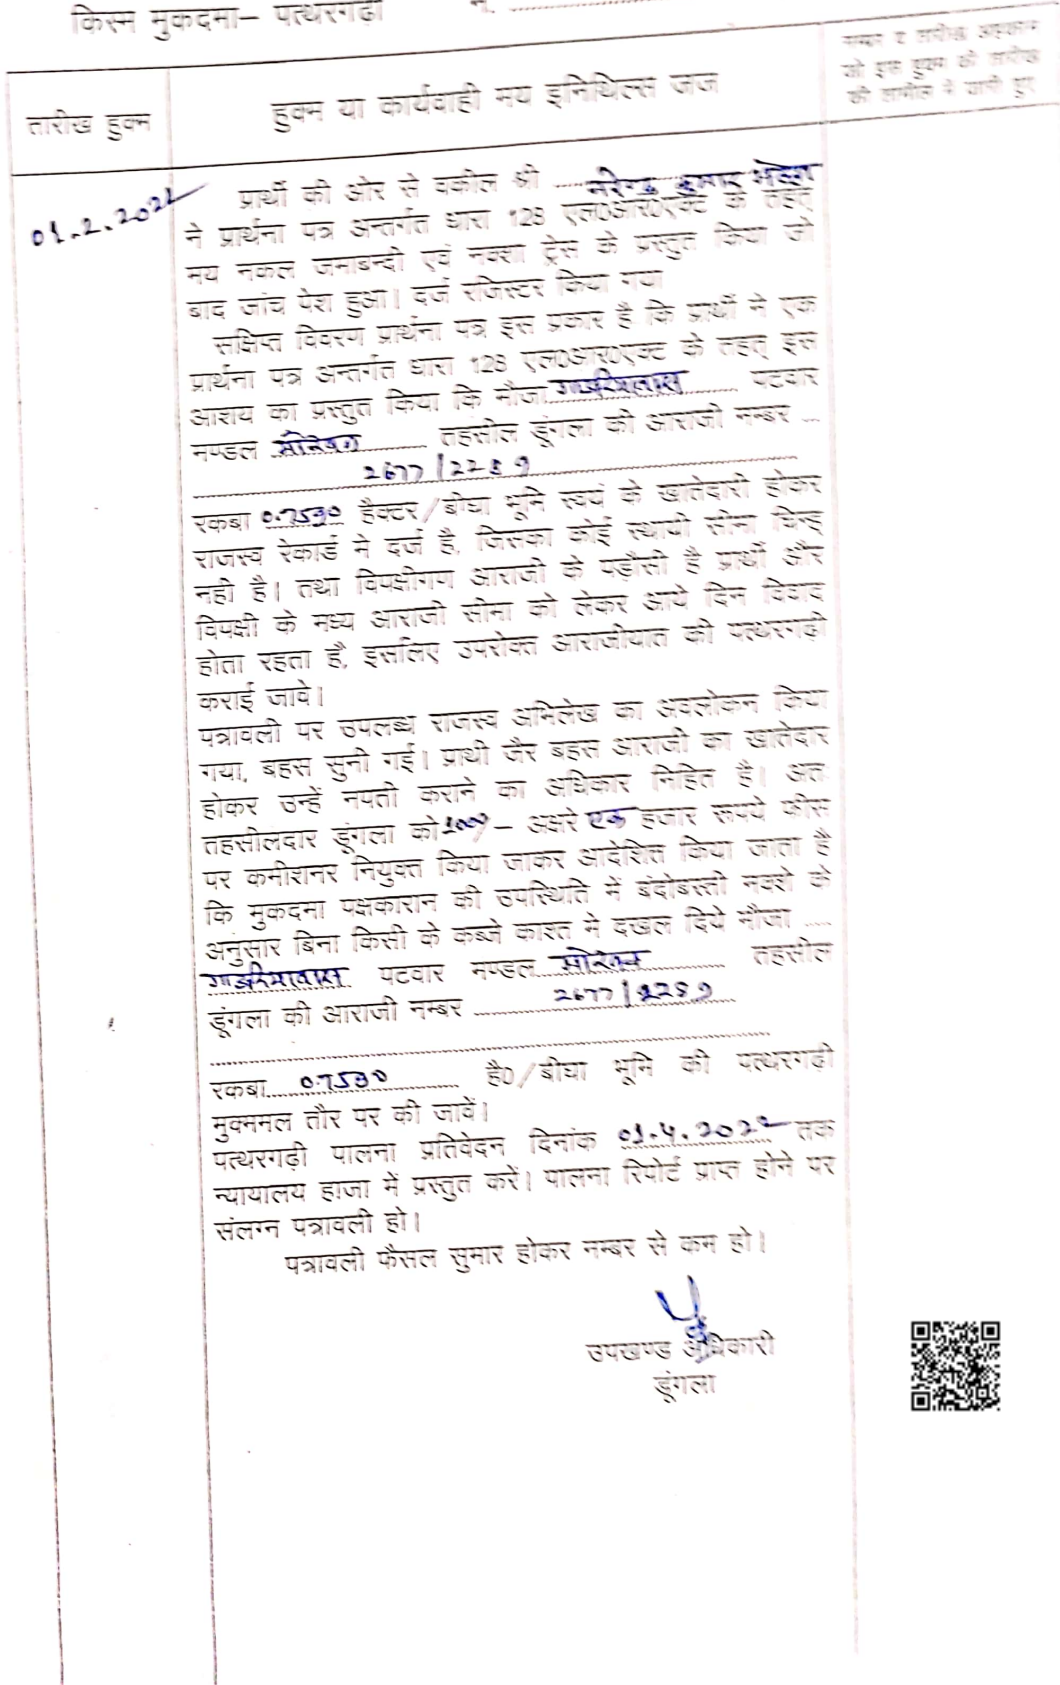 किस्म मुकदमा– पत्थरगढ़ी
नं. ....................
तारीख हुक्म
हुक्म या कार्यवाही मय इनिथिल्स जज
नम्बर व तारीख अहकाम
जो इस हुक्म की तारीख
की तामील में जारी हुए
01.2.2022
प्रार्थी की ओर से वकील श्री नरेन्द्र कुमार
ने प्रार्थना पत्र अन्तर्गत धारा 128 एल0आर0एक्ट के तहत्
मय नकल जमाबन्दी एवं नक्शा ट्रेस के प्रस्तुत किया जो
बाद जांच पेश हुआ। दर्ज रजिस्टर किया गया
सक्षिप्त विवरण प्रार्थना पत्र इस प्रकार है कि प्रार्थी ने एक
प्रार्थना पत्र अन्तर्गत धारा 128 एल0आर0एक्ट के तहत् इस
आशय का प्रस्तुत किया कि मौजा गाडरियावास पटवार
मण्डल मोरवन तहसील डूंगला की आराजी नम्बर ...
2677/2289
रकबा 0.7530 हैक्टर/बीघा भूमि स्वयं के खातेदारी होकर
राजस्व रेकार्ड मे दर्ज है, जिसका कोई स्थायी सीमा चिन्ह
नही है। तथा विपक्षीगण आराजी के पड़ौसी है प्रार्थी और
विपक्षी के मध्य आराजी सीमा को लेकर आये दिन विवाद
होता रहता है, इसलिए उपरोक्त आराजीयात की पत्थरगढ़ी
कराई जावे।
पत्रावली पर उपलब्ध राजस्व अभिलेख का अवलोकन किया
गया, बहस सुनी गई। प्राथी जैर बहस आराजी का खातेदार
होकर उन्हें नपती कराने का अधिकार निहित है। अतः
तहसीलदार डूंगला को 1000/– अक्षरे एक हजार रूपये फीस
पर कमीशनर नियुक्त किया जाकर आदेशित किया जाता है
कि मुकदमा पक्षकारान की उपस्थिति में बंदोबस्ती नक्शे के
अनुसार बिना किसी के कब्जे काश्त मे दखल दिये मौजा ....
गाडरियावास पटवार मण्डल मोरवन तहसील
डूंगला की आराजी नम्बर 2677/2289
रकबा 0.7530 है0/बीघा भूमि की पत्थरगढ़ी
मुक्ममल तौर पर की जावें।
पत्थरगढ़ी पालना प्रतिवेदन दिनांक 01.4.2022 तक
न्यायालय हाजा में प्रस्तुत करें। पालना रिपोर्ट प्राप्त होने पर
संलग्न पत्रावली हो।
पत्रावली फैसल सुमार होकर नम्बर से कम हो।
उपखण्ड अधिकारी
डूंगला